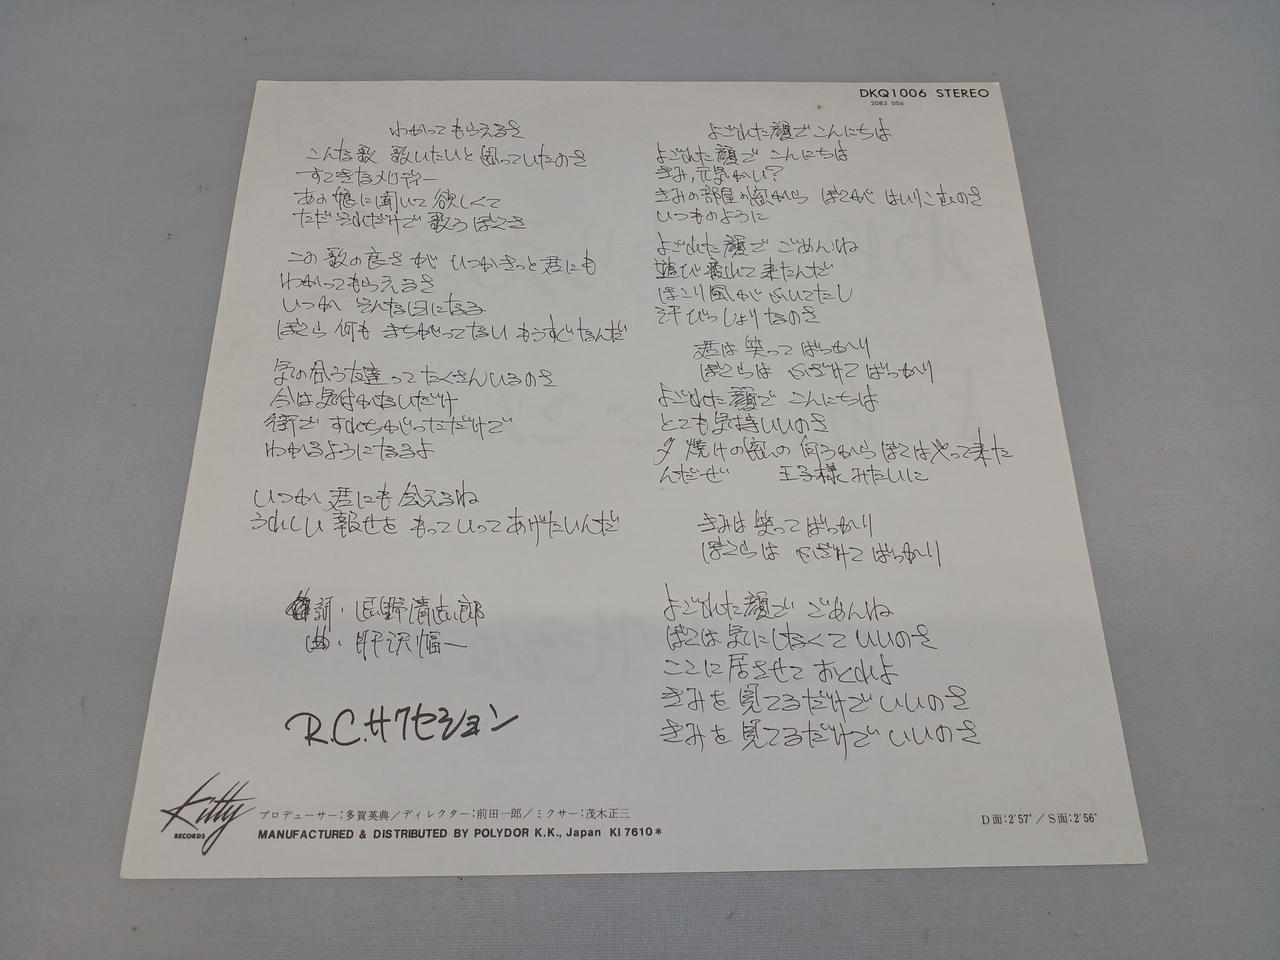 DKQ1006 STEREO
2083 006
わかってもらえるさ
こんな歌 歌いたいと思っていたのさ
すてきなメロディー
あの娘に聞いて欲しくて
ただそれだけで歌うぼくさ
この歌の良さが いつかきっと君にも
わかってもらえるさ
いつか そんな日になる
ぼくら何も まちがってない もうすぐなんだ
気の合う友達ってたくさんいるのさ
今は気付かないだけ
街で すれちがっただけで
わかるようになるよ
いつか 君にも会えるね
うれしい報せを もっていってあげたいんだ
作詞・忌野清志郎
曲・肝沢幅一
R.C.サクセション
よごれた顔でこんにちは
よごれた顔で こんにちは
きみ,元気かい?
きみの部屋の窓から ぼくが はいりこむのさ
いつものように
よごれた顔で ごめんね
遊び疲れて来たんだ
ほこり風が ふいてたし
汗びっしょりなのさ
君は笑ってばっかり
ぼくらは ふざけてばっかり
よごれた顔で こんにちは
とても気持いいのさ
夕焼けの窓の向うからぼくはやって来た
んだぜ 王子様みたいに
きみは笑ってばっかり
ぼくらは ふざけてばっかり
よごれた顔で ごめんね
ぼくは気にしなくていいのさ
ここに居させて おくれよ
きみを見てるだけでいいのさ
きみを見てるだけでいいのさ
Kitty
RECORDS
プロデューサー:多賀英典/ディレクター:前田一郎/ミクサー:茂木正三
MANUFACTURED & DISTRIBUTED BY POLYDOR K.K., Japan KI 7610*
D面:2'57" / S面:2'56"